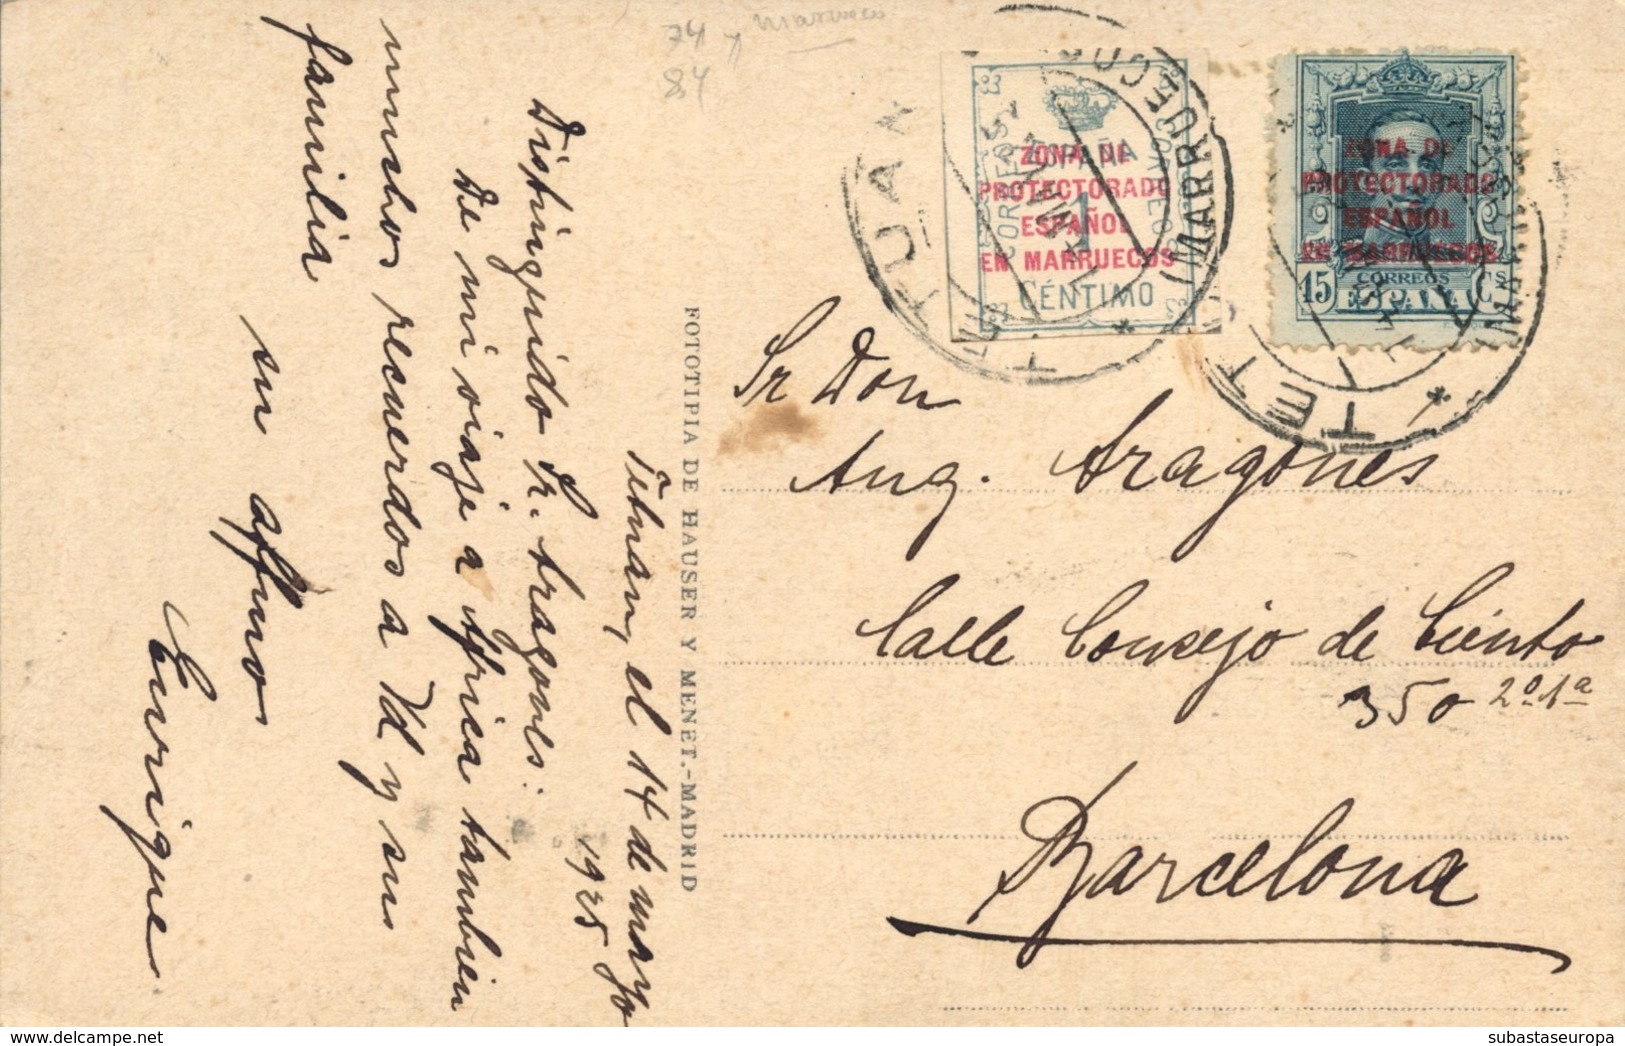 Tetuan, el 14 de mayo
1925
Distinguido Sr. Aragones:
De mi viaje a Africa tambien
muchos recuerdos a Vd y su
familia
su affmo
Enrique
FOTOTIPIA DE HAUSER Y MENET.-MADRID
74 y
84
Marruecos
CORREOS
CORREOS
ESPAÑA
1
CÉNTIMO
ZONA DE
PROTECTORADO
ESPAÑOL
EN MARRUECOS
ZONA DE
PROTECTORADO
ESPAÑOL
EN MARRUECOS
CORREOS
15 ESPAÑA Cs
TETUAN
(MARRUECOS)
TET
(MARR
Sr Don
Ang. Aragones
Calle Consejo de Ciento
350 2º 1ª
Barcelona
subastaseuropa